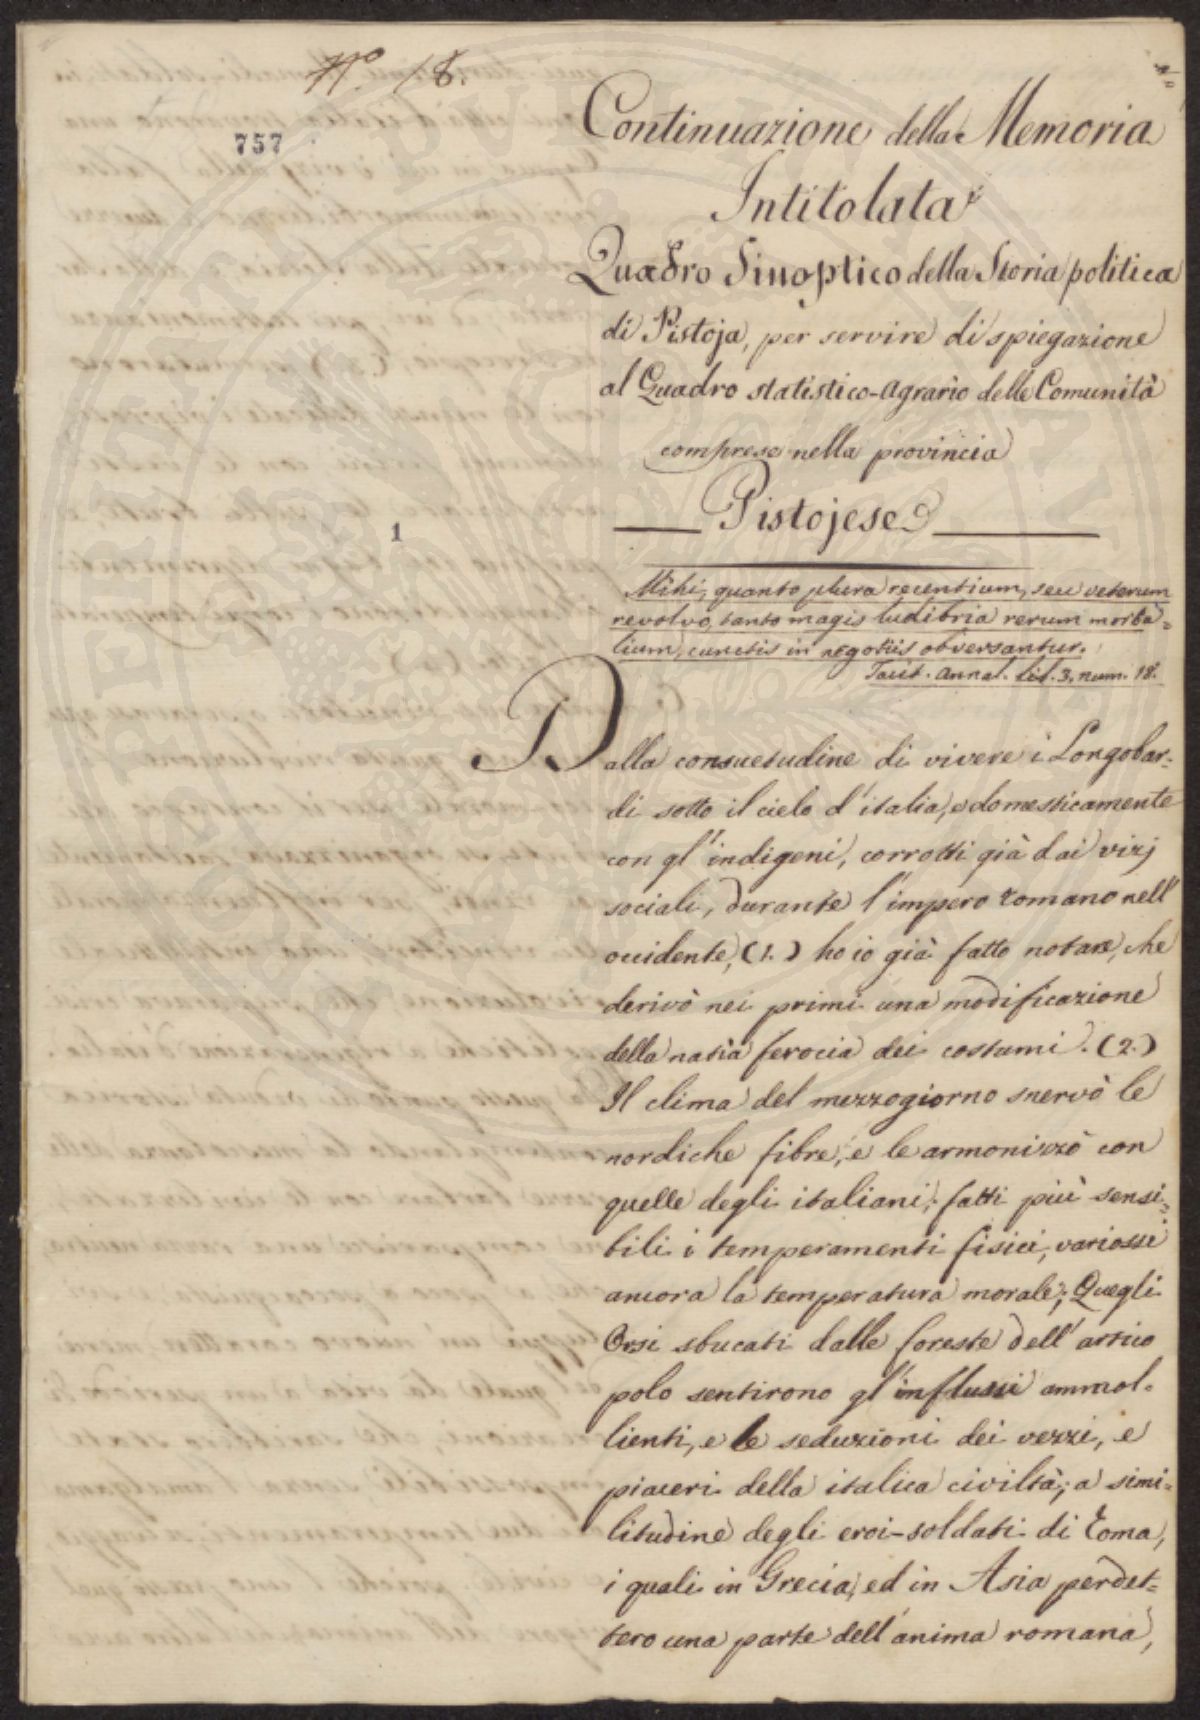 N.º 18.
757
Continuazione della Memoria
Intitolata
Quadro Sinoptico della Storia politica
di Pistoja, per servire di spiegazione
al Quadro statistico-agrario delle Comunità
comprese nella provincia
Pistojese
1
Mihi, quanto plura recentium, seu veterum
revolvo, tanto magis ludibria rerum morta=
lium, cunctis in negotiis obversantur.
Tacit. Annal. lib. 3. num. 18.
Dalla consuetudine di vivere i Longobar-
di sotto il cielo d'italia, e domesticamente
con gl'indigeni, corrotti già dai vizj
sociali, durante l'impero romano nell'
occidente, (1.) ho io già fatto notare, che
derivò nei primi una modificazione
della natia ferocia dei costumi. (2.)
Il clima del mezzogiorno snervò le
nordiche fibre, e le armonizzò con
quelle degli italiani; fatti più sensi=
bili i temperamenti fisici, variossi
ancora la temperatura morale; Quegli
Orsi sbucati dalle foreste dell'artico
polo sentirono gl'influssi ammol-
lienti, e le seduzioni dei vezzi, e
piaceri della italica civiltà; a simi=
litudine degli eroi-soldati di Roma,
i quali in Grecia, ed in Asia perdet=
tero una parte dell'anima romana,